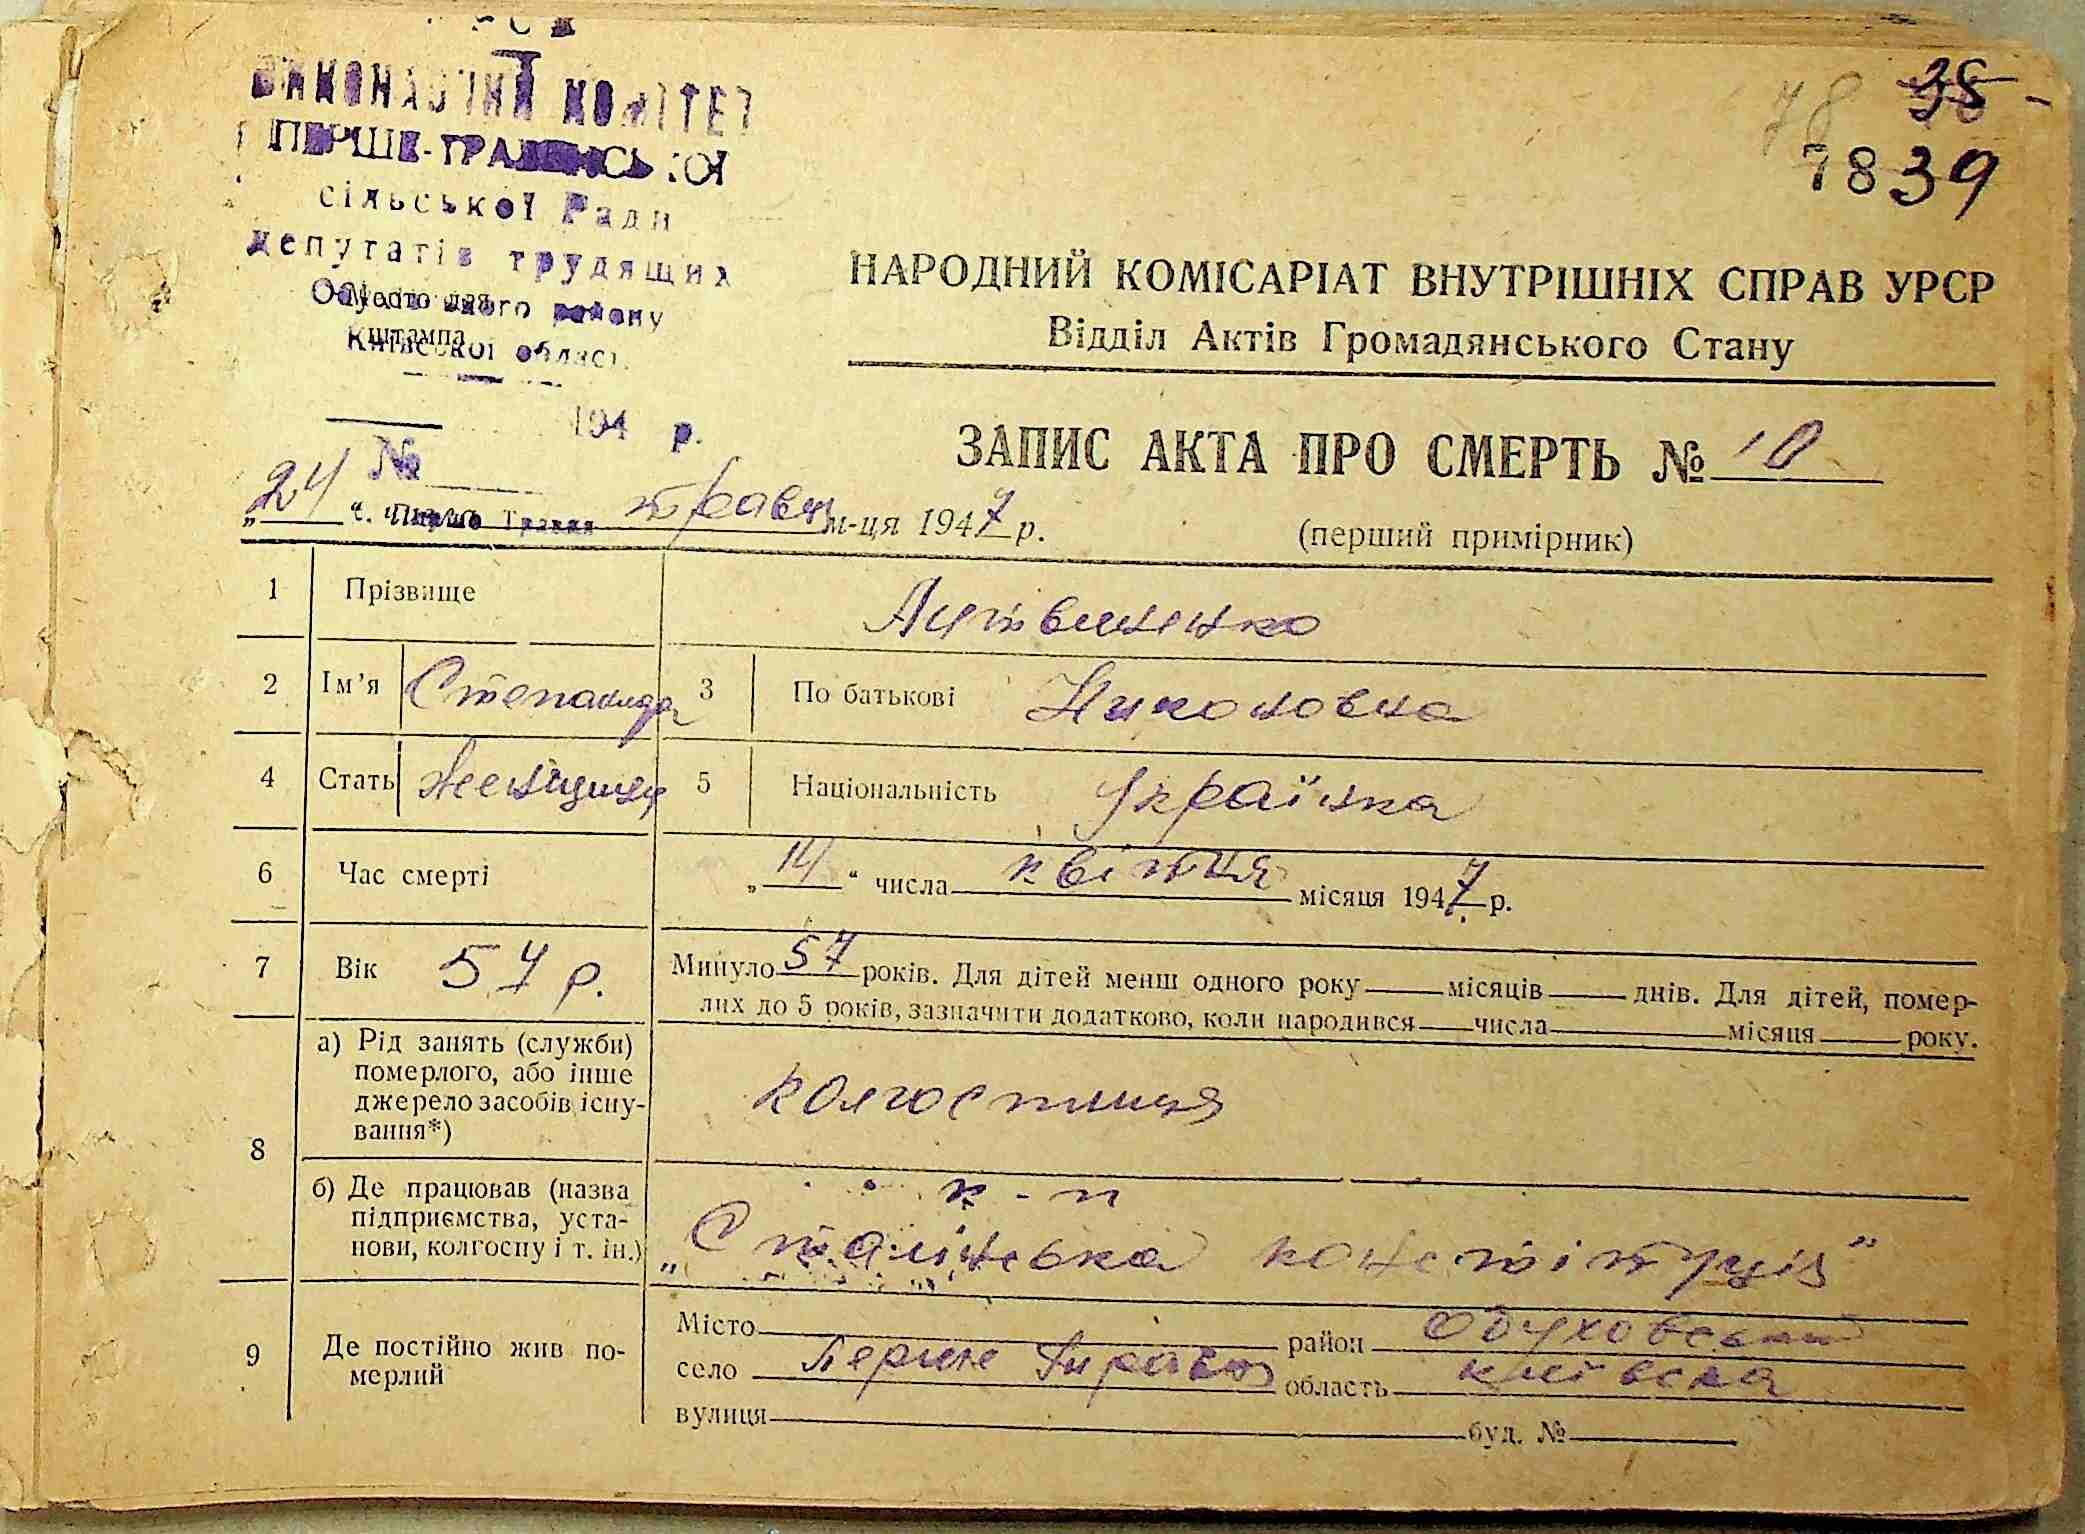 ВИКОНАВЧИЙ КОМІТЕТ
ПЕРШЕ-ТРАВЕНСЬКОЇ
сільської Ради
депутатів трудящих
Обухівського району
Київської області
Место для
штампа
194 р.
№
78 38
7839
НАРОДНИЙ КОМІСАРІАТ ВНУТРІШНІХ СПРАВ УРСР
Відділ Актів Громадянського Стану
ЗАПИС АКТА ПРО СМЕРТЬ № 10
(перший примірник)
„24“ травня м-ця 1947 р.
с. Перше Травня
1 Прізвище Литвиненко
2 Ім'я Степанида 3 По батькові Николовна
4 Стать Женщина 5 Національність Українка
6 Час смерті „14“ числа квітня місяця 1947 р.
7 Вік 57 р. Минуло 57 років. Для дітей менш одного року місяців днів. Для дітей, помер-
лих до 5 років, зазначити додатково, коли народився числа місяця року.
8 а) Рід занять (служби)
померлого, або інше
джерело засобів існу-
вання*)
колгоспниця
б) Де працював (назва
підприємства, уста-
нови, колгоспу і т. ін.)
к-п
„Сталінська констітуція"
9 Де постійно жив по-
мерлий
Місто район Обуховський
село Перше Травня область київска
вулиця буд. №